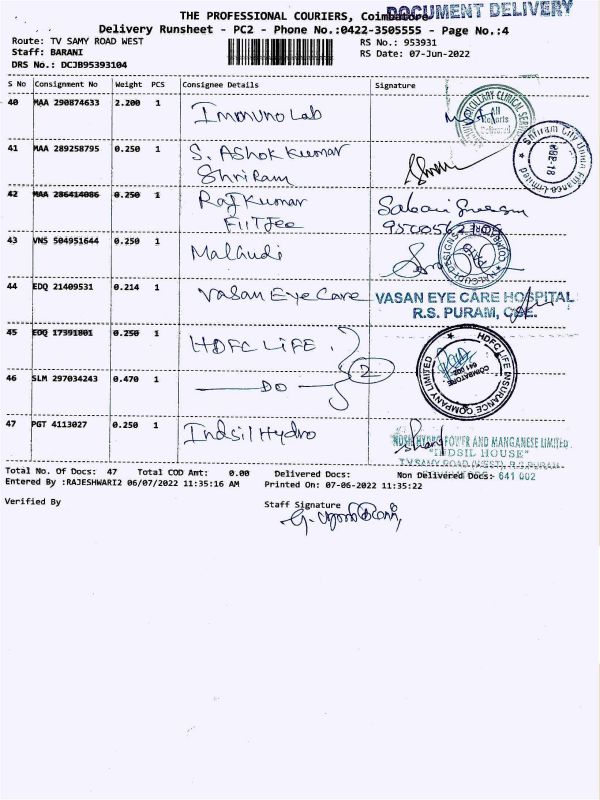 DOCUMENT DELIVERY
THE PROFESSIONAL COURIERS, Coimbatore
Delivery Runsheet - PC2 - Phone No.:0422-3505555 - Page No.:4
Route: TV SAMY ROAD WEST
RS No.: 953931
Staff: BARANI
RS Date: 07-Jun-2022
DRS No.: DCJB95393104
S No Consignment No Weight PCS Consignee Details Signature
40 MAA 290874633 2.200 1 Immuno Lab
All Reports Delivered
41 MAA 289258795 0.250 1 S. Ashok Kumar
Shriram
Shriram City Union Finance Limited
42 MAA 286414086 0.250 1 Raj Kumar
FiiTJee
43 VNS 504951644 0.250 1 Malgudi
44 EDQ 21409531 0.214 1 Vasan Eye Care
VASAN EYE CARE HOSPITAL
R.S. PURAM, CBE.
45 EDQ 17391801 0.250 1 HDFC LIFE.
46 SLM 297034243 0.470 1 DO
2
HDFC LIFE INSURANCE COMPANY LIMITED
COIMBATORE
641 002
47 PGT 4113027 0.250 1 Indsil Hydro
INDSIL HYDRO POWER AND MANGANESE LIMITED
"INDSIL HOUSE"
T.V.SAMY ROAD (WEST), R.S.PURAM
641 002
Total No. Of Docs: 47 Total COD Amt: 0.00 Delivered Docs: Non Delivered Docs:
Entered By :RAJESHWARI2 06/07/2022 11:35:16 AM Printed On: 07-06-2022 11:35:22
Verified By
Staff Signature